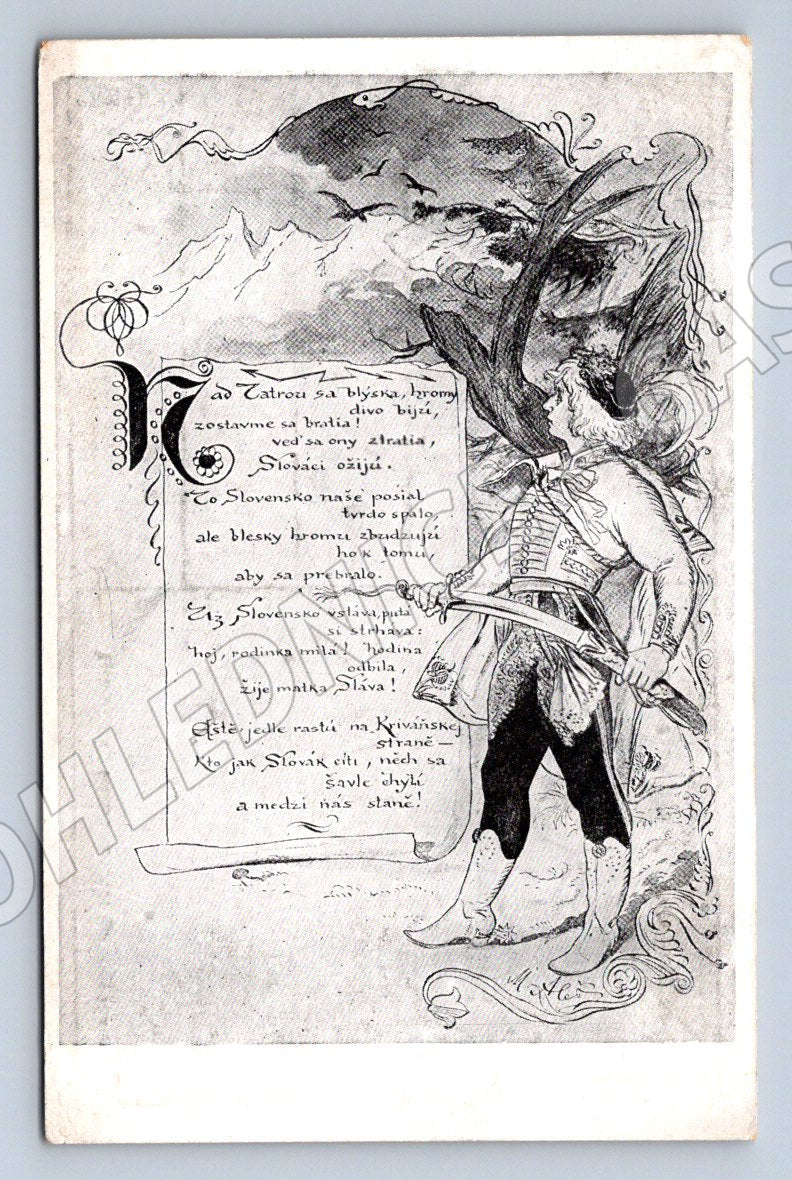 Nad Tatrou sa blýska, hromy
divo bijú,
zostavme sa bratia!
veď sa ony ztratia,
Slováci ožijú.
To Slovensko naše posiaľ
tvrdo spalo,
ale blesky hromu zbudzujú
ho k tomu,
aby sa prebralo.
Už Slovensko vstáva, putá
si strhává:
hoj, rodinka milá! hodina
odbila,
žije matka Sláva!
Eště jedle rastú na Kriváňskej
straně —
kto jak Slovák cíti, něch sa
šavle chytí
a medzi nás staně!
M. Aleš